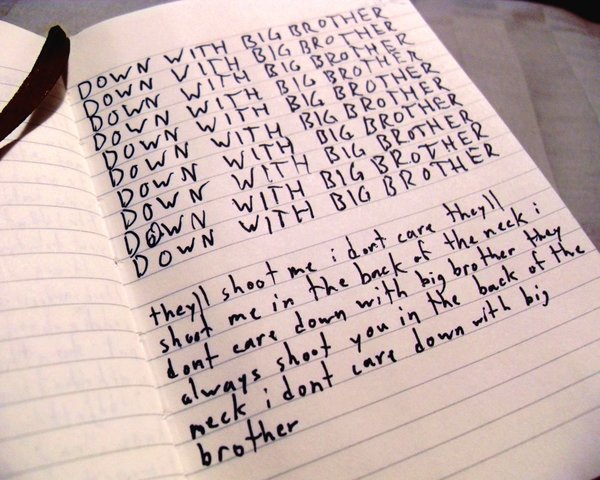 DOWN WITH BIG BROTHER
DOWN WITH BIG BROTHER
DOWN WITH BIG BROTHER
DOWN WITH BIG BROTHER
DOWN WITH BIG BROTHER
DOWN WITH BIG BROTHER
DOWN WITH BIG BROTHER
DOWN WITH BIG BROTHER
DOWN WITH BIG BROTHER
they'll shoot me i dont care they'll
shoot me in the back of the neck i
dont care down with big brother they
always shoot you in the back of the
neck i dont care down with big
brother